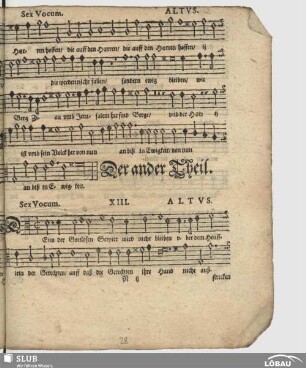 Sex Vocum. ALTVS.
ren hoffen/ die auff den Herren/ die auff den Herren hoffen/ ij
die werden nicht fallen/ sondern ewig bleiben/ wie
Berg umb Jerusalem her sind Berge/ und der Herr ij
ist umb sein Volck her von nun an biß in Ewigkeit von nun
an biß in Ewigkeit.
Der ander Theil.
Sex Vocum. XIII. ALTVS.
Enn der Gottlosen Scepter wird nicht bleiben v- ber dem Häuff-
lein der Gerechten/ auff daß die Gerechten ihre Hand nicht auß
N ij strecken
28
SLUB
Wir führen Wissen.
LÖBAU